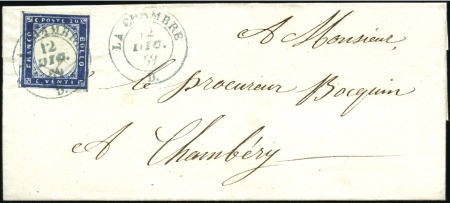 C. POSTE 20
FRANCO
BOLLO
C. VENTI
CHAMBRE
12
DIC.
D.
LA CHAMBRE
12
DIC.
59
D.
A Monsieur,
le procureur Bocquin
A Chambéry